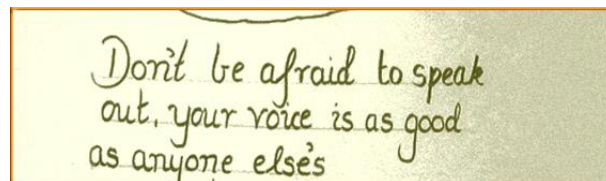 Don't be afraid to speak
out, your voice is as good
as anyone else's